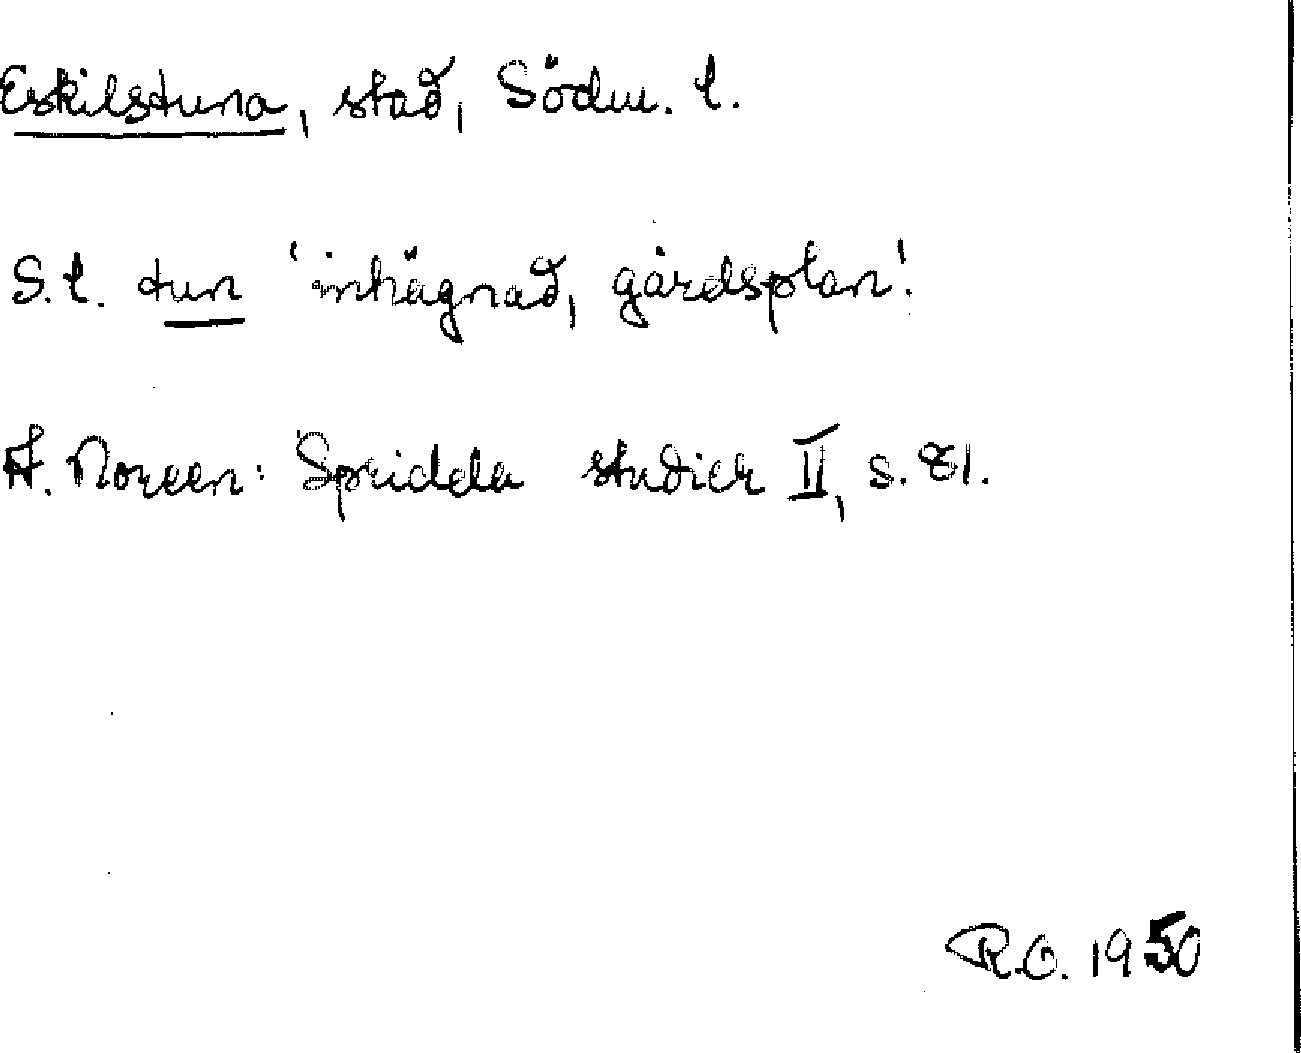 Eskilstuna, stad, Södm. l.
S.l. tun 'inhägnad, gårdsplan'.
A. Noreen: Spridda studier II, s. 81.
R.O. 1950